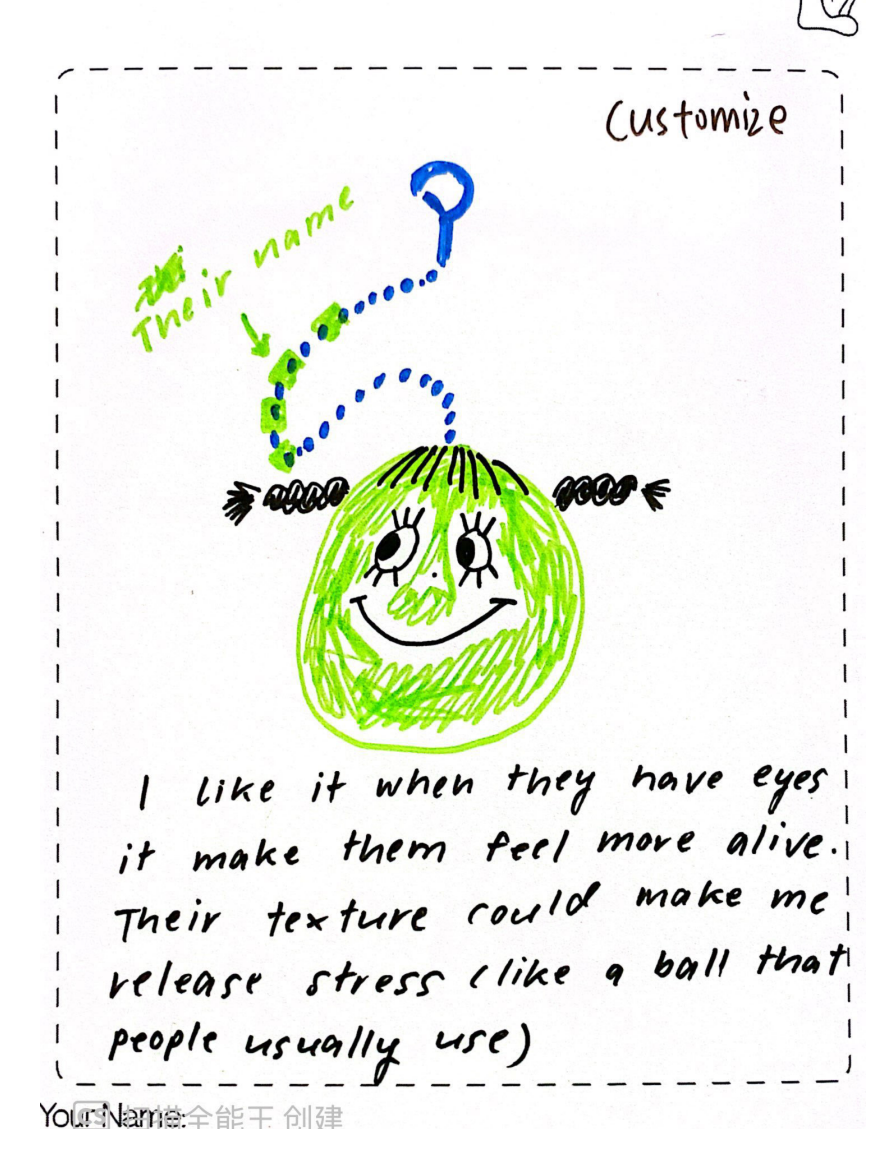 Customize
Their name
I like it when they have eyes
it make them feel more alive.
Their texture could make me
release stress (like a ball that
people usually use)
Your Name:
CS 扫描全能王 创建